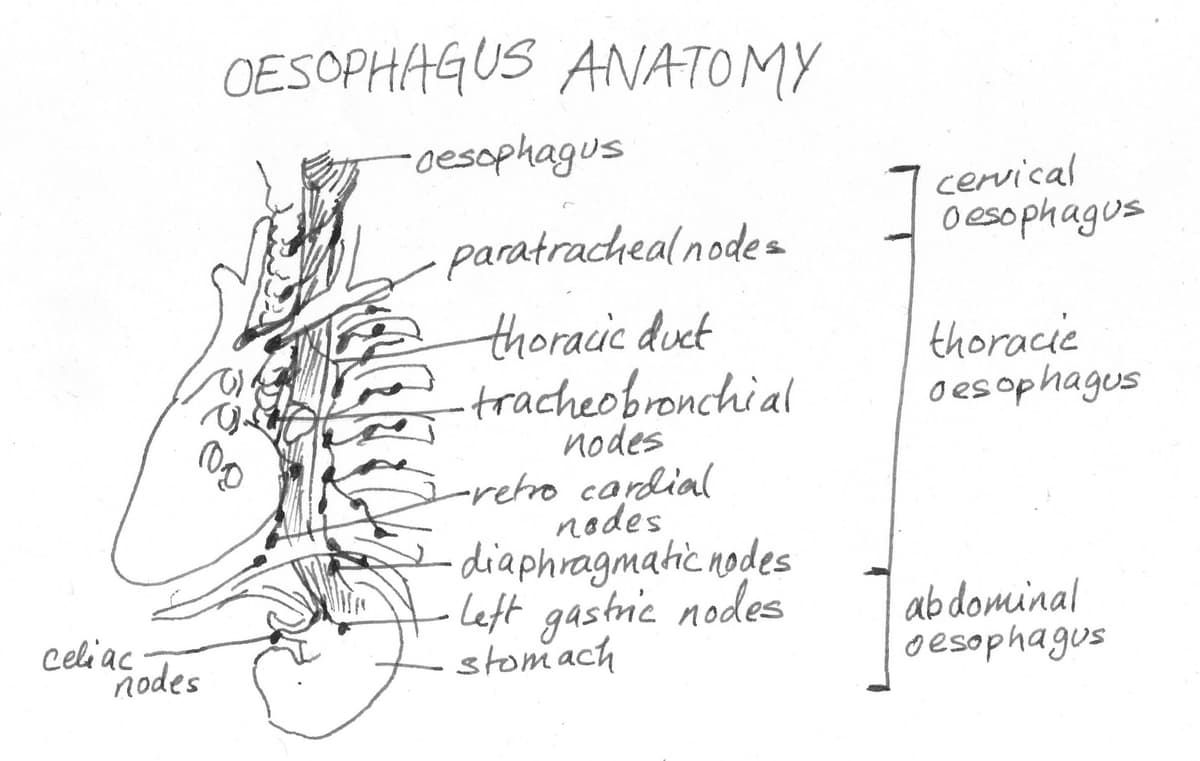 OESOPHAGUS ANATOMY
oesophagus
paratracheal nodes
thoracic duct
tracheobronchial
nodes
retro cardial
nodes
diaphragmatic nodes
left gastric nodes
stomach
celiac
nodes
cervical
oesophagus
thoracie
oesophagus
abdominal
oesophagus